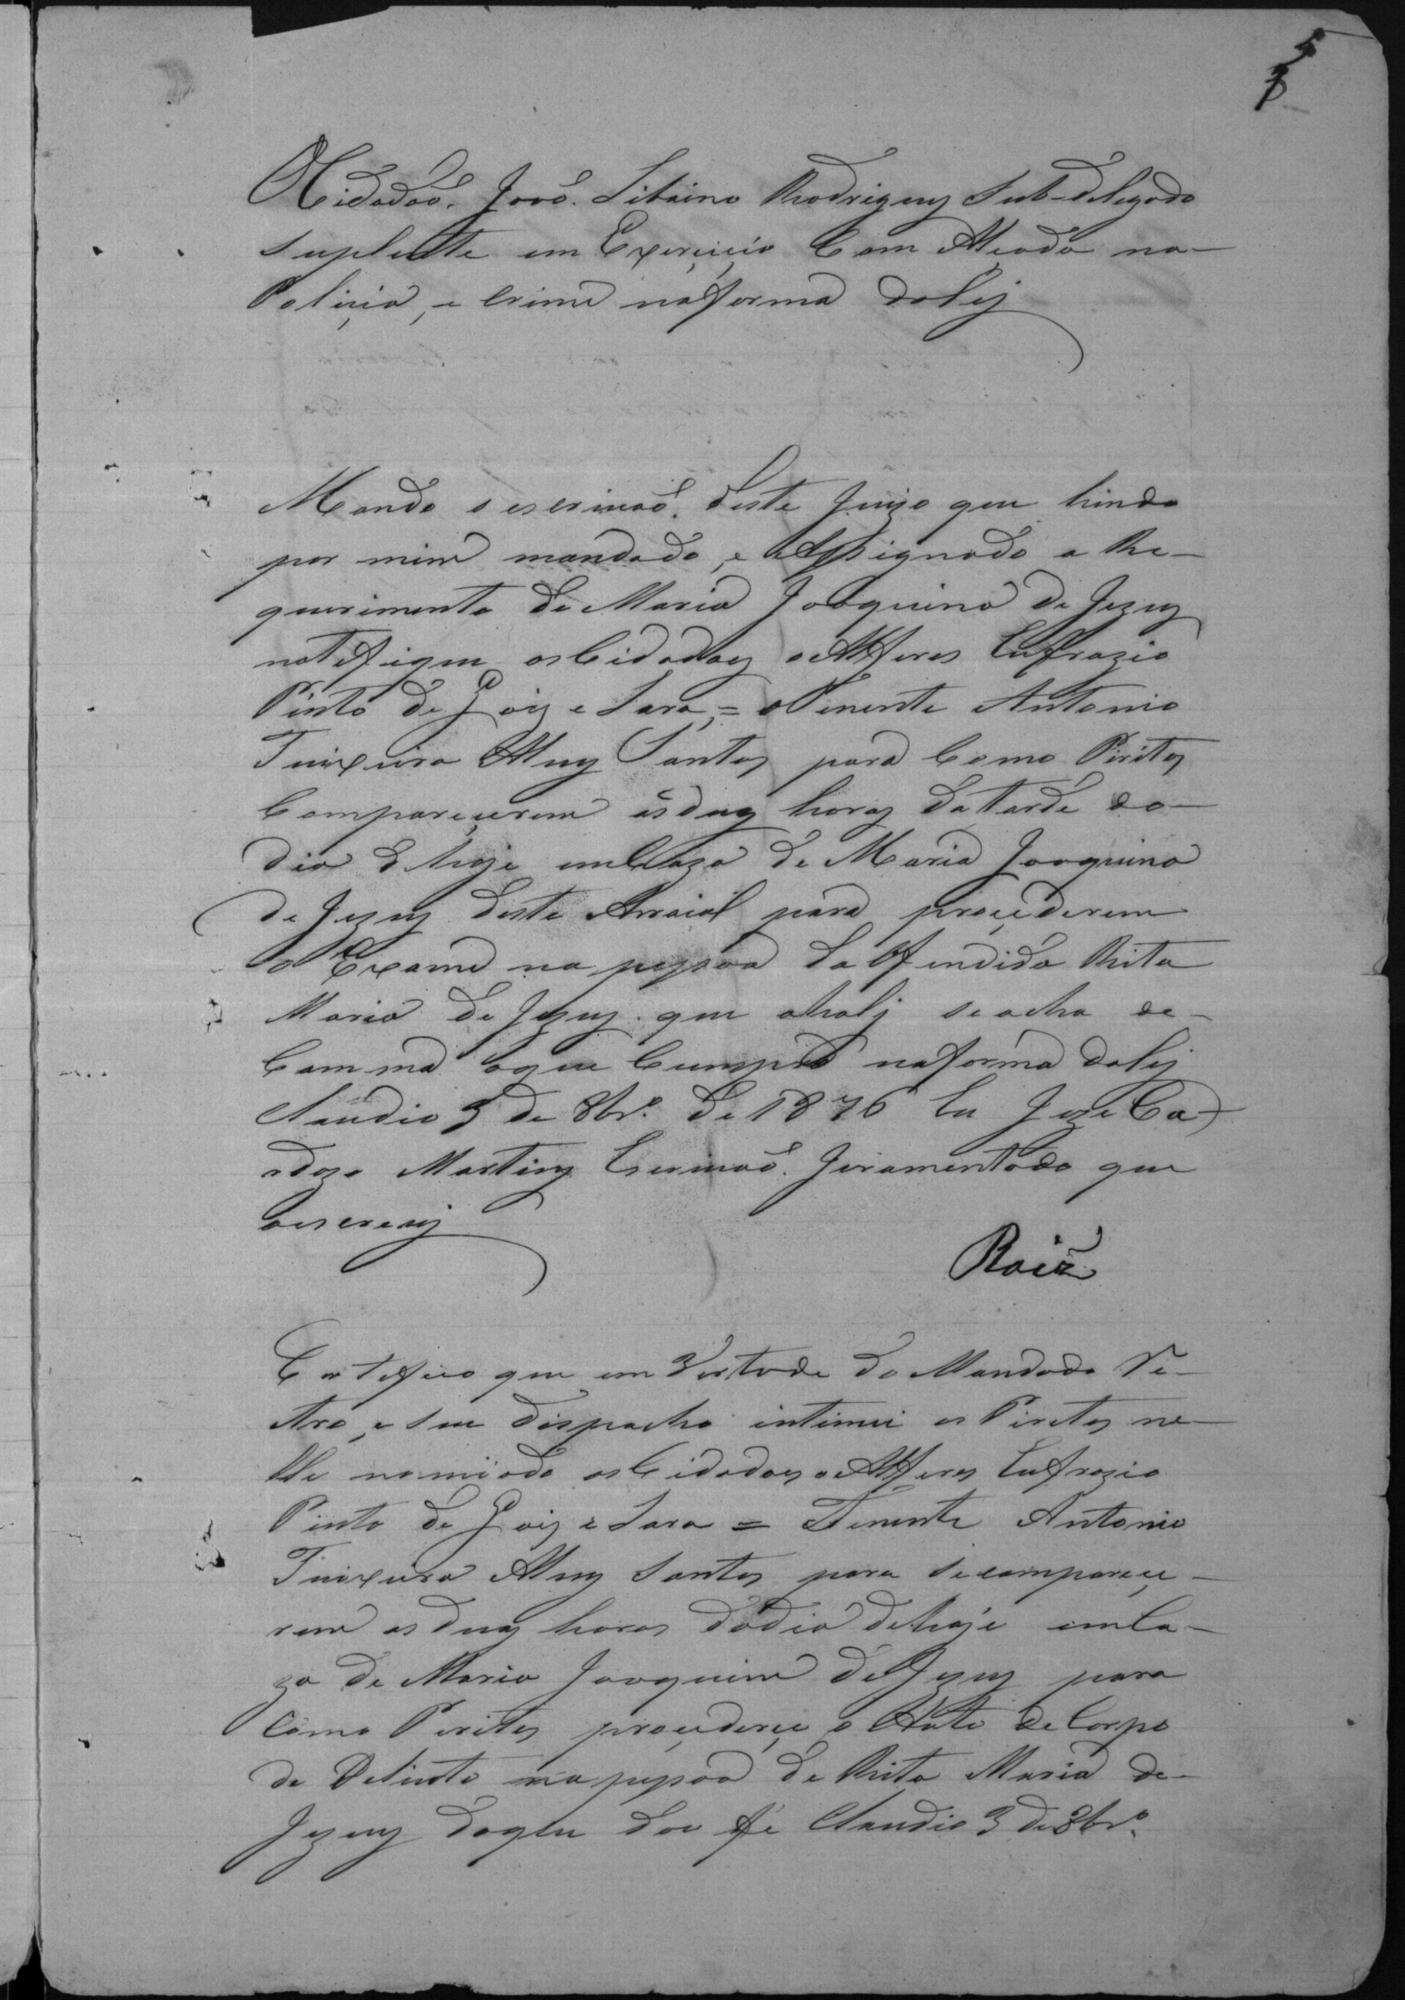 5
OCidadão João Libaino Rodrigues Sub-delegado
suplente em Exercicio Com Alçada na
Policia, e Crime na forma da lej
Mando o escrivaõ deste Juizo que hindo
por mim mandado, e Assignado a Re-
querimento de Maria Joaquina de Jezus
notifique os Cidadoes o Alferes Eufrazio
Pinto de Gois e Lara, = o Tenente Antonio
Teixeira Alves Santos para Como Piritos
Compareçerem ás duas horas da tarde do
dia de hoje em Caza de Maria Joaquina
de Jezus deste Arraial para proçederem
o Exame na pessoa da Ofendida Rita
Maria de Jezus que ahalj se acha de
Camma oque Cumpra na forma da lej
Claudio 3 de 8br.º de 1876 Eu Joze Ca-
rdozo Martins Escrivaõ Juramentado que
oescrevj
Roiz
Certefico que em Vertude do Mandado re-
tro, e seu dispacho intimei os Piritos ne-
lle nomiado os Cidadoes o Alferes Eufrazio
Pinto de Gois e Lara = Tenente Antonio
Teixeira Alves Santos para se compareçe-
rem as duas horas do dia de hoje em Ca-
za de Maria Joaquina de Jezus para
Como Peritos proçederem o Auto de Corpo
de Delicto na pessoa de Rita Maria de
Jezus do que dou fé Claudio 3 de 8br.º